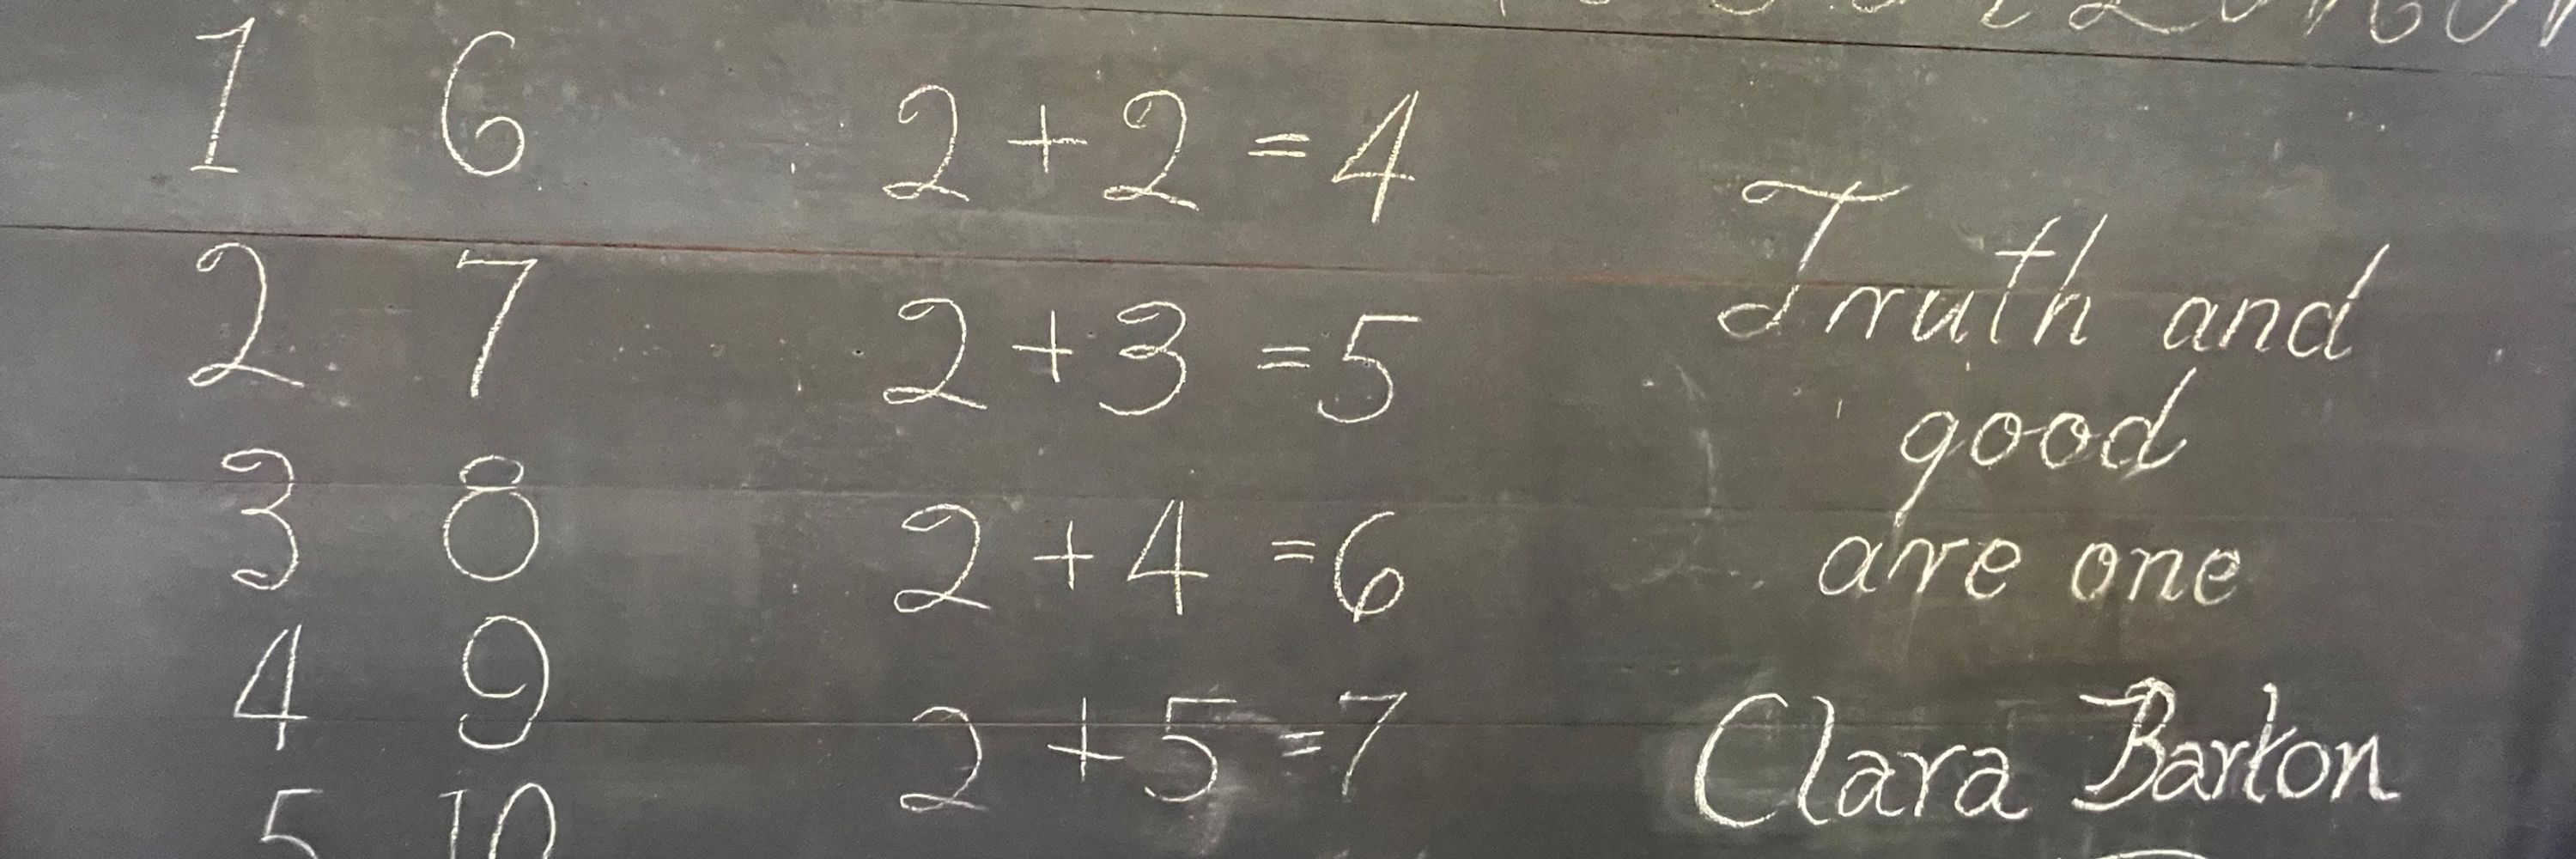 1 6
2 7
3 8
4 9
5 10
2 + 2 = 4
2 + 3 = 5
2 + 4 = 6
2 + 5 = 7
Truth and
good
are one
Clara Barton